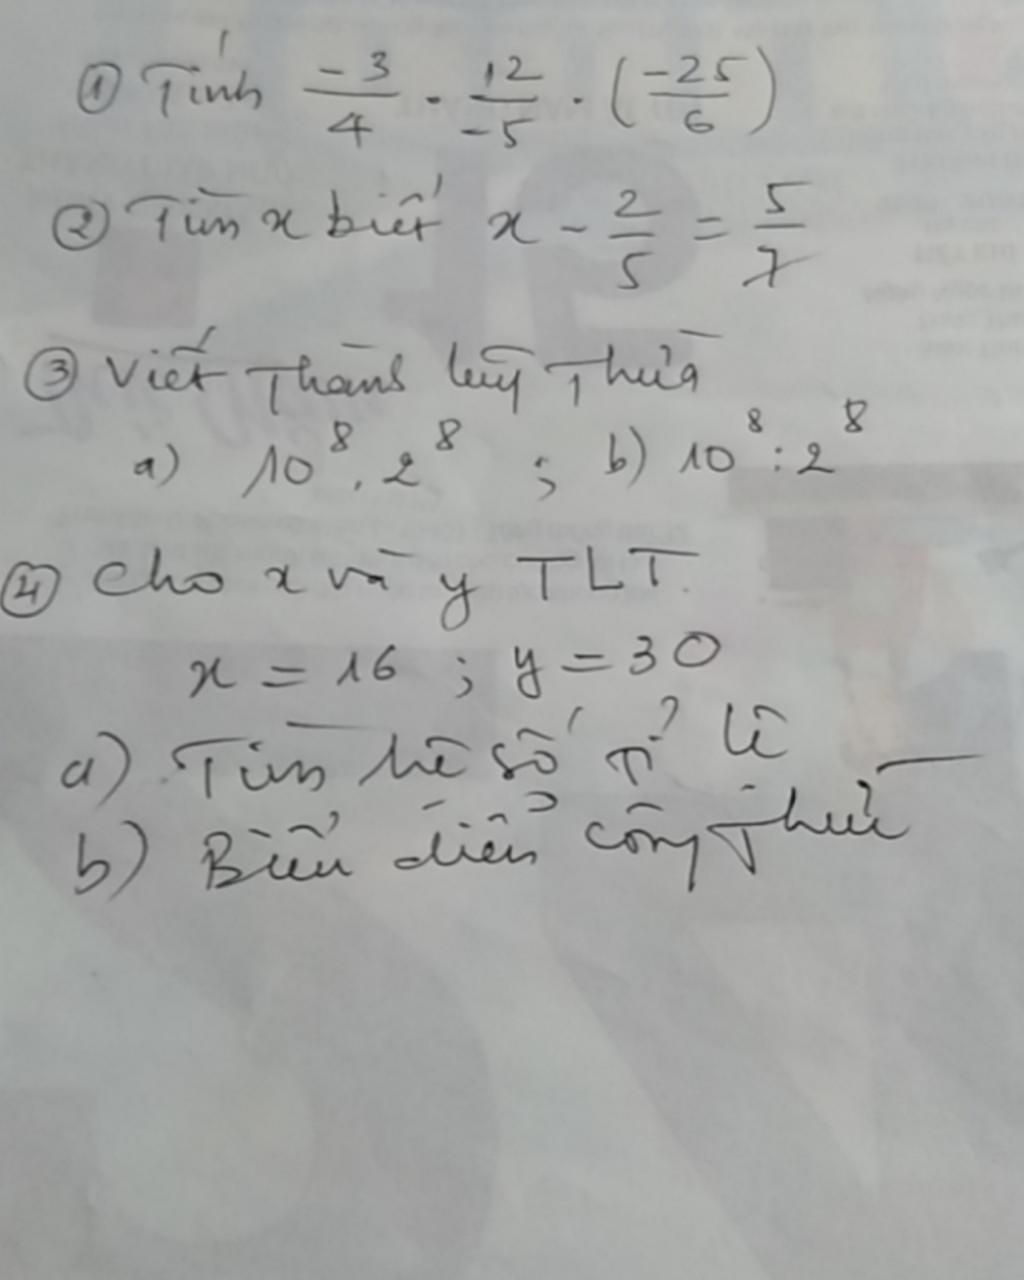 ① Tính -3/4 . 12/-5 . (-25/6)
② Tìm x biết x - 2/5 = 5/7
③ Viết thành lũy thừa
a) 10⁸ . 2⁸ ; b) 10⁸ : 2⁸
④ Cho x và y TLT.
x = 16 ; y = 30
a) Tìm hệ số tỉ lệ
b) Biểu diễn công thức